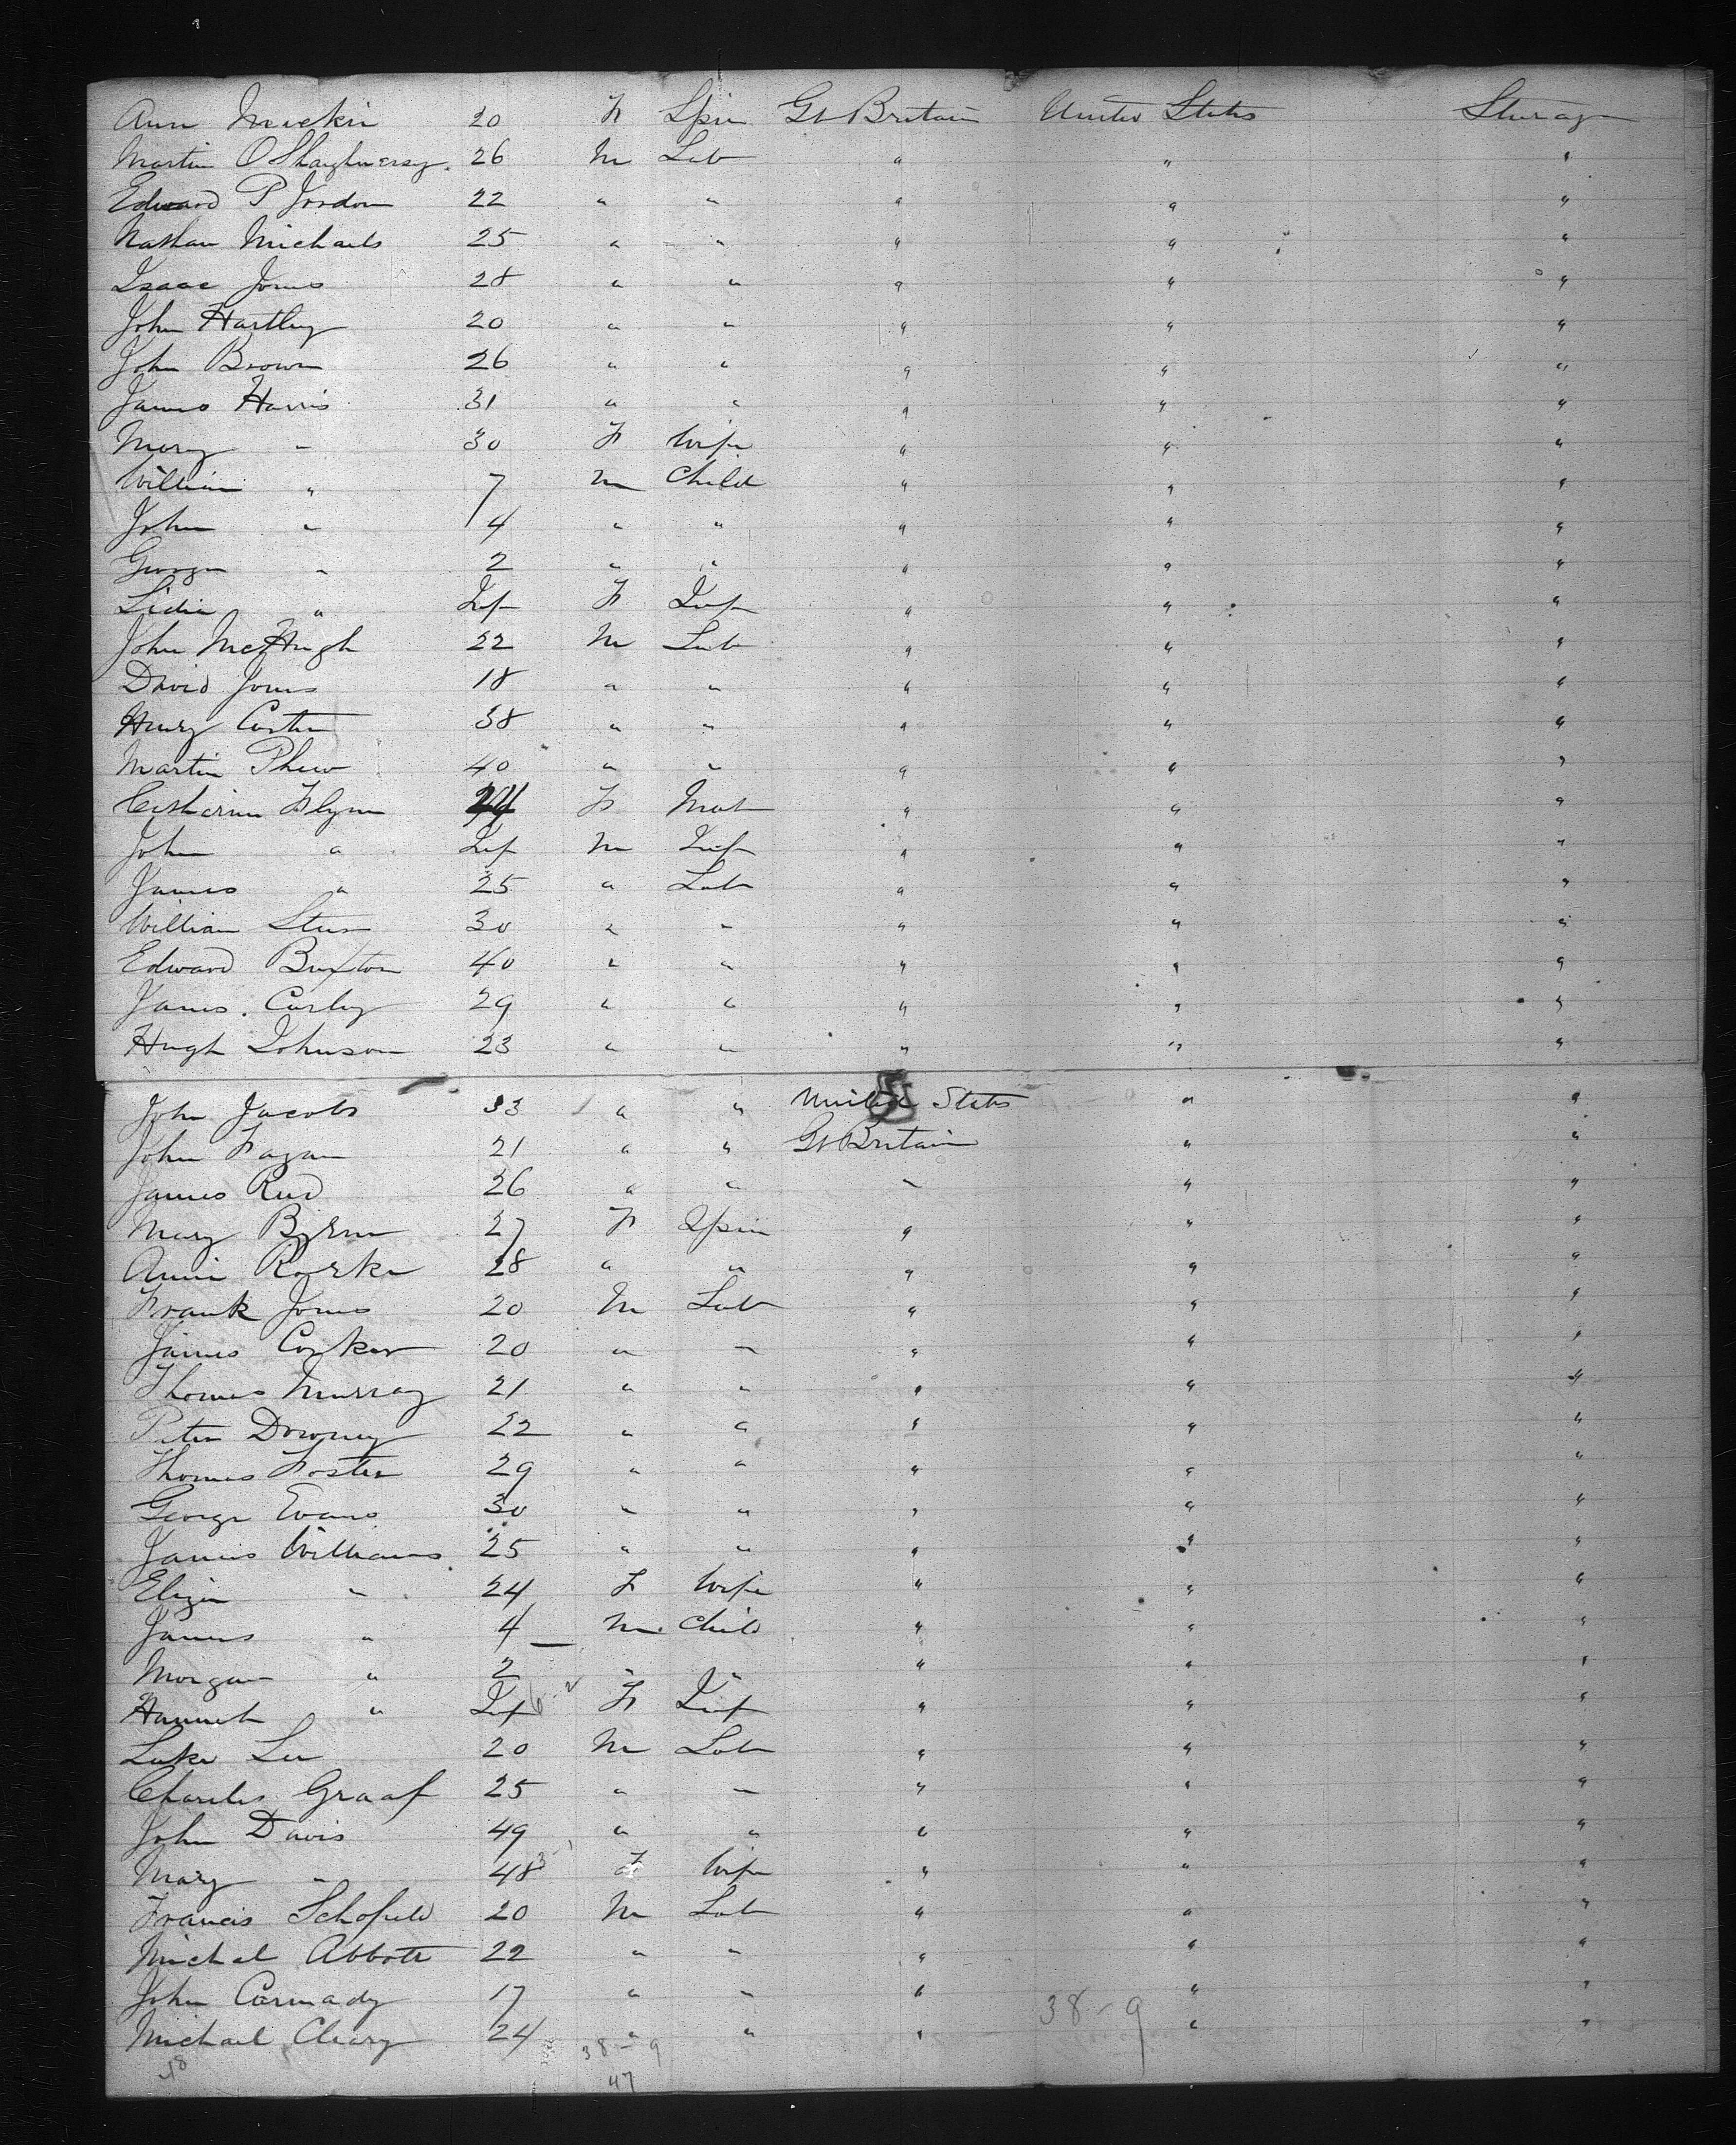 Ann Mackin 20 F Spin Gt Britain United States Sterage
Martin O Shaughnersy. 26 M Lab " " "
Edward P Jordon 22 " " " " "
Nathan Michaels 25 " " " " "
Isaac Jones 28 " " " " "
John Hartley 20 " " " " "
John Brown 26 " " " " "
James Harris 31 " " " " "
Mary " 30 F Wife " " "
William " 7 M Child " " "
John " 4 " " " " "
George " 2 " " " " "
Lidia " Inf F Inf " " "
John McHugh 22 M Lab " " "
David Jones 18 " " " " "
Henry Carter 38 " " " " "
Martin Phew 40 " " " " "
Catherine Flynn 24 F Mat " " "
John " Inf M Inf " " "
James " 25 " Lab " " "
William 30 " " " " "
Edward Buxton 40 " " " " "
James. Carley 29 " " " " "
Hugh Johnson 23 " " " " "
John Jacobs 33 " " United States " "
John Fagan 21 " " Gt Britain " "
James Reed 26 " " " " "
Mary Byrne 27 F Spin " " "
Annie Rorke 28 " " " " "
Frank Jones 20 M Lab " " "
James Corker 20 " " " " "
Thomas Murray 21 " " " " "
Peter Downey 22 " " " " "
Thomas Foster 29 " " " " "
George Evans 30 " " " " "
James Williams 25 " " " " "
Eliza " 24 F Wife " " "
James " 4 M Child " " "
Morgan " 2 " " " " "
Hannah " Inf F Inf " " "
Luke Lee 20 M Lab " " "
Charles Graaf 25 " " " " "
John Davis 49 " " " " "
Mary " 48 F Wife " " "
Francis Schofield 20 M Lab " " "
Michal Abbott 22 " " " " "
John Carmady 17 " " " " "
Michael Cleary 24 " " " " "
38-9
38-9
47